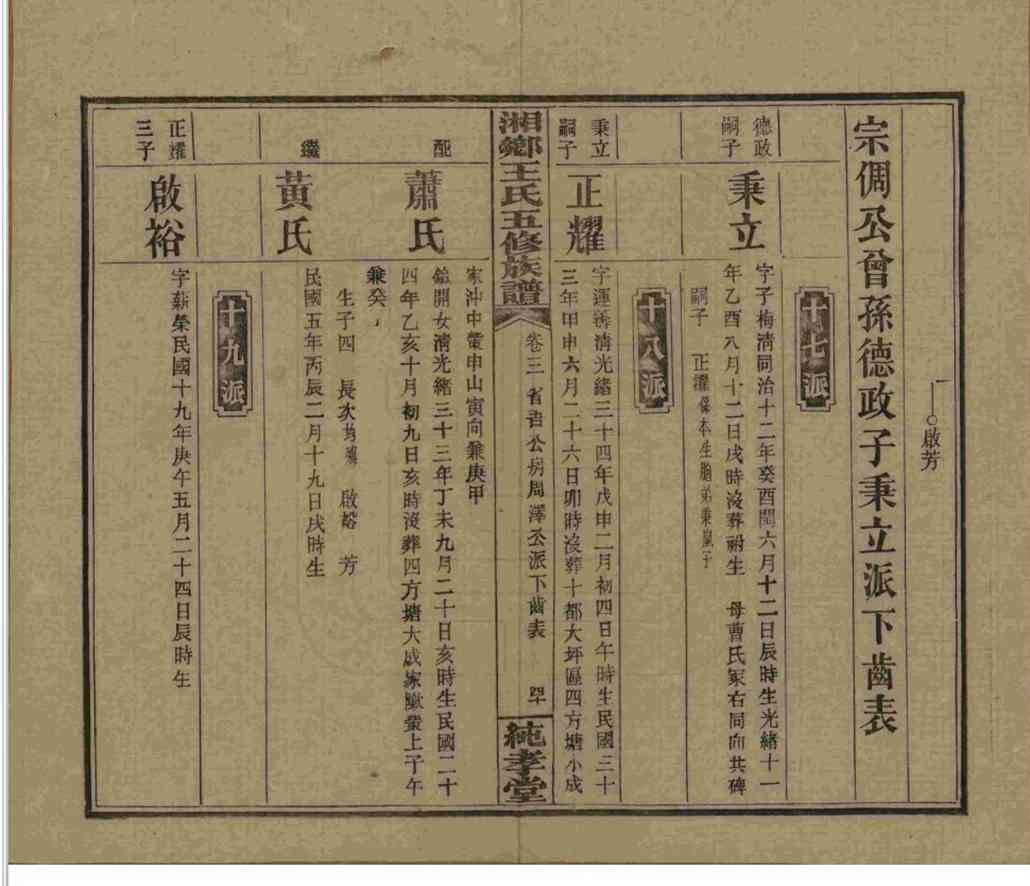 一
○啟芳
宗倜公曾孫德政子秉立派下齒表
十七派
德政
嗣子
秉立
字子梅清同治十二年癸酉閏六月十二日辰時生光緒十一
年乙酉八月十二日戌時沒葬祔生 母曹氏冢右同向共碑
嗣子 正耀係本生胞弟秉 子
十八派
秉立
嗣子
正耀
字運 清光緒三十四年戊申二月初四日午時生民國三十
三年甲申六月二十六日卯時沒葬十都大坪區四方塘小成
湘鄉王氏五修族譜
卷三 省吾公房周澤公派下齒表
四十
純孝堂
家沖中 申山寅向兼庚甲
配
蕭氏
鎰開女清光緒三十三年丁未九月二十日亥時生民國二十
四年乙亥十月初九日亥時沒葬四方塘大成家 上子午
兼癸丁
生子四 長次均殤 啟裕 芳
繼
黃氏
民國五年丙辰二月十九日戌時生
十九派
正耀
三子
啟裕
字薪榮民國十九年庚午五月二十四日辰時生